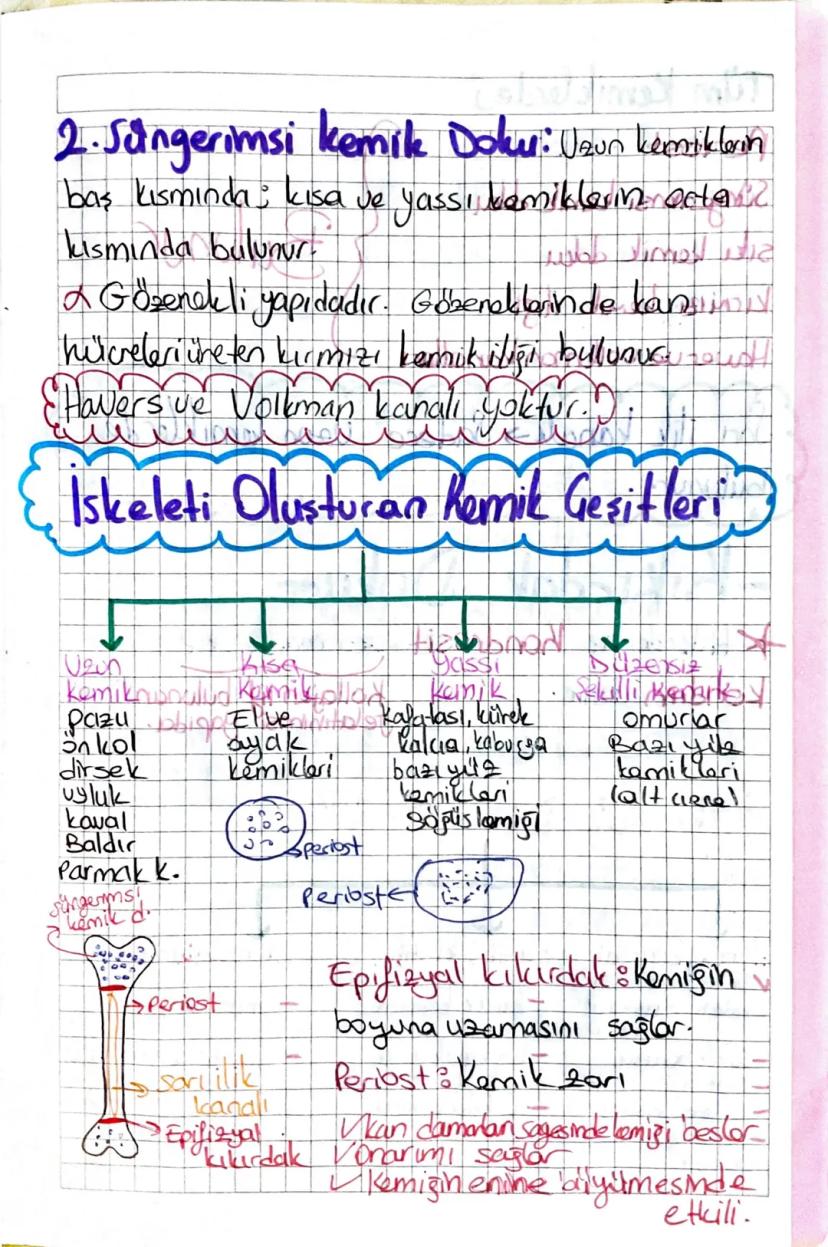 2. Süngerimsi Kemik Doku: Uzun kemiklerin
baş kısmında; kısa ve yassı kemiklerin orta
kısmında bulunur.
α Gözenekli yapıdadır. Gözeneklerinde kan
hücreleri üreten kırmızı kemik iliği bulunur.
Havers ve Volkman kanalı yoktur.
İskeleti Oluşturan Kemik Çeşitleri
Uzun
kemik
Pazu
önkol
dirsek
uyluk
kaval
Baldır
Parmak k.
Kısa
Kemik
El ve
ayak
kemikleri
periost
Yassı
kemik
Kafatası, kürek
kalça, kaburga
bazı yüz
kemikleri
Göğüs kemiği
Periost
Düzensiz
Şekilli
omurlar
Bazı yüz
kemikleri
(alt çene)
Süngerimsi
kemik d.
Periost
sarı ilik
kanalı
Epifizyal
kıkırdak
Epifizyal kıkırdak: Kemiğin
boyuna uzamasını sağlar.
Periost: Kemik zarı
✓kan damarları sayesinde kemiği besler
✓Onarımı sağlar
✓Kemiğin enine büyümesinde
etkili.